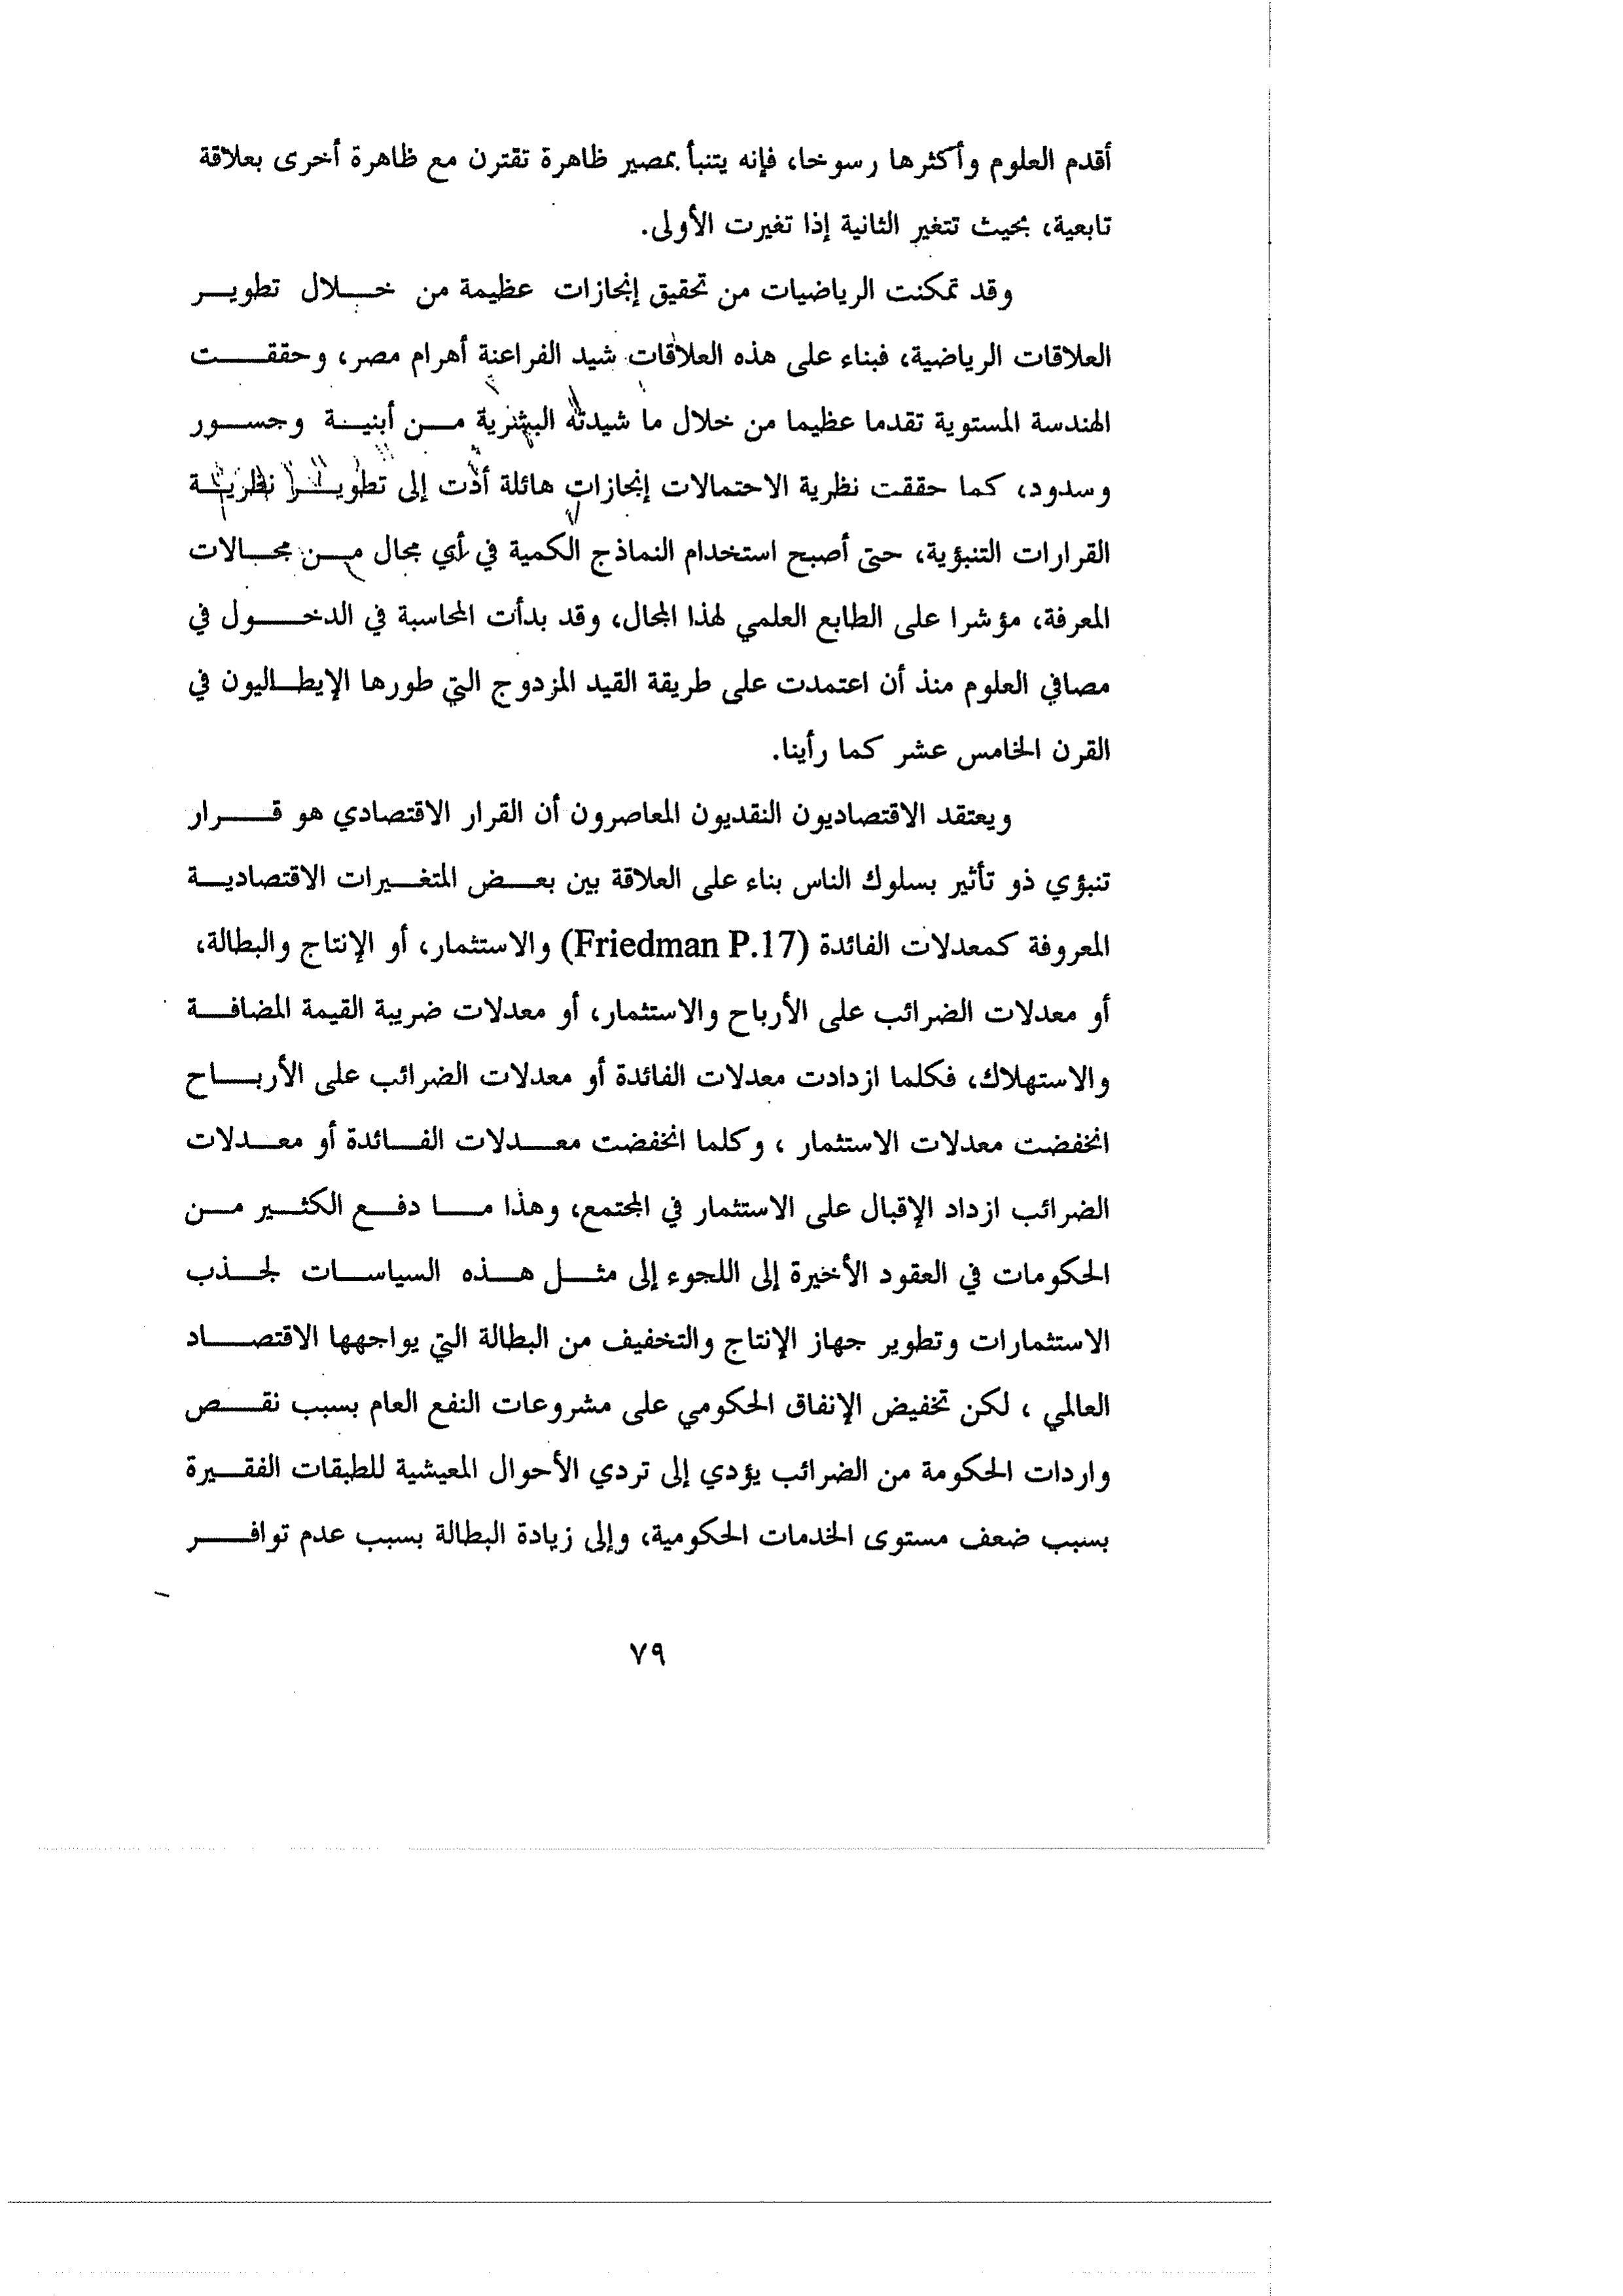 أقدم العلوم وأكثرها رسوخا، فإنه يتنبأ بمصير ظاهرة تقترن مع ظاهرة أخرى بعلاقة
تابعية، بحيث تتغير الثانية إذا تغيرت الأولى.
وقد تمكنت الرياضيات من تحقيق إنجازات عظيمة من خلال تطوير
العلاقات الرياضية، فبناء على هذه العلاقات شيد الفراعنة أهرام مصر، وحققت
الهندسة المستوية تقدما عظيما من خلال ما شيدته البشرية من أبنية وجسور
وسدود، كما حققت نظرية الاحتمالات إنجازات هائلة أدت إلى تطوير نظرية
القرارات التنبؤية، حتى أصبح استخدام النماذج الكمية في أي مجال من مجالات
المعرفة، مؤشرا على الطابع العلمي لهذا المجال، وقد بدأت المحاسبة في الدخول في
مصافي العلوم منذ أن اعتمدت على طريقة القيد المزدوج التي طورها الإيطاليون في
القرن الخامس عشر كما رأينا.
ويعتقد الاقتصاديون النقديون المعاصرون أن القرار الاقتصادي هو قرار
تنبؤي ذو تأثير بسلوك الناس بناء على العلاقة بين بعض المتغيرات الاقتصادية
المعروفة كمعدلات الفائدة (Friedman P.17) والاستثمار، أو الإنتاج والبطالة،
أو معدلات الضرائب على الأرباح والاستثمار، أو معدلات ضريبة القيمة المضافة
والاستهلاك، فكلما ازدادت معدلات الفائدة أو معدلات الضرائب على الأرباح
انخفضت معدلات الاستثمار ، وكلما انخفضت معدلات الفائدة أو معدلات
الضرائب ازداد الإقبال على الاستثمار في المجتمع، وهذا ما دفع الكثير من
الحكومات في العقود الأخيرة إلى اللجوء إلى مثل هذه السياسات لجذب
الاستثمارات وتطوير جهاز الإنتاج والتخفيف من البطالة التي يواجهها الاقتصاد
العالمي ، لكن تخفيض الإنفاق الحكومي على مشروعات النفع العام بسبب نقص
واردات الحكومة من الضرائب يؤدي إلى تردي الأحوال المعيشية للطبقات الفقيرة
بسبب ضعف مستوى الخدمات الحكومية، وإلى زيادة البطالة بسبب عدم توافر
٧٩